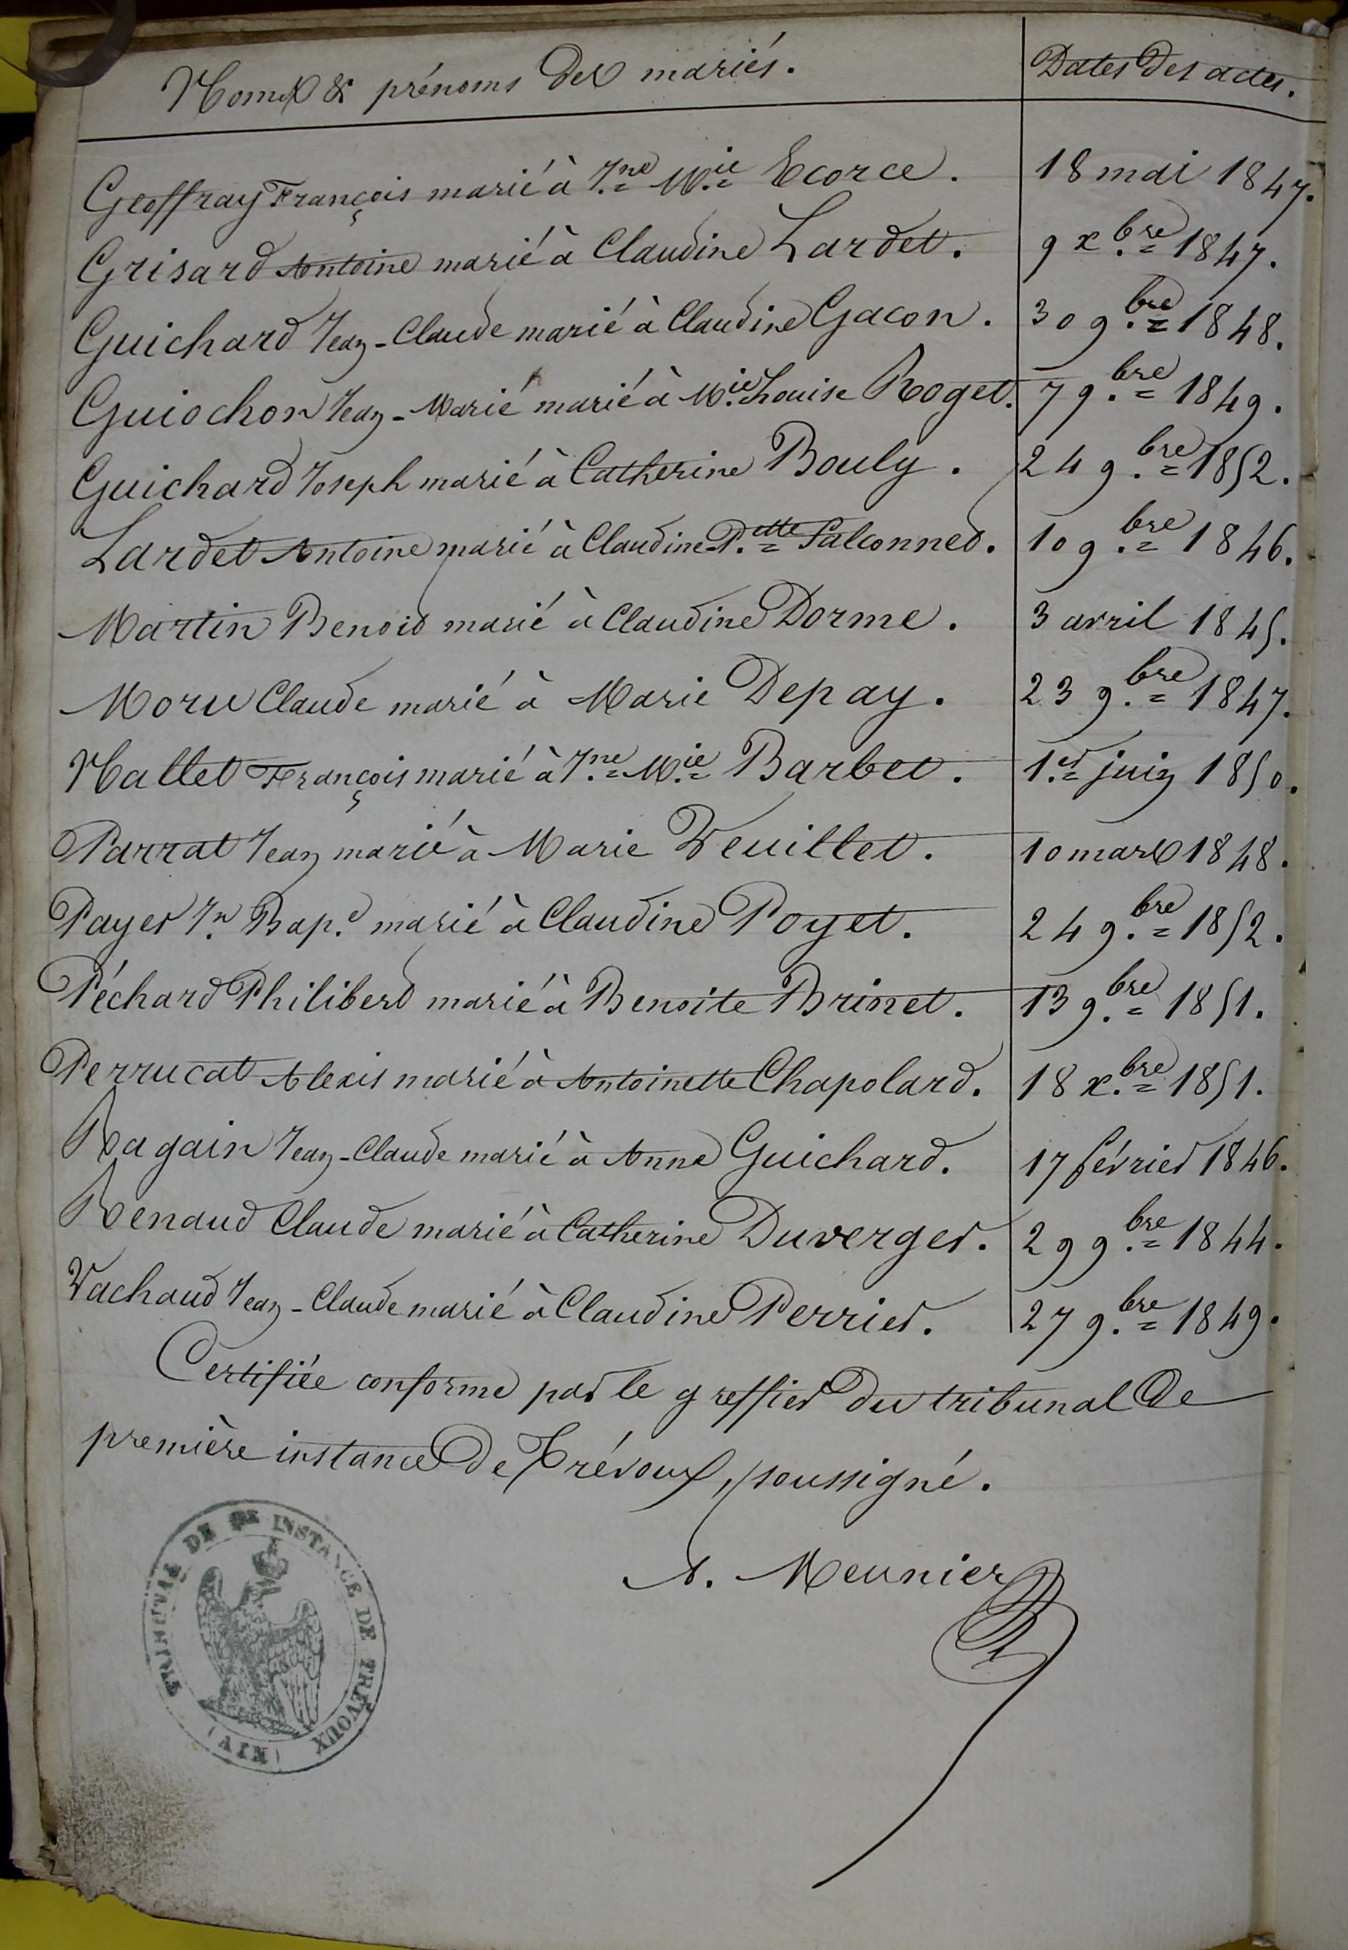 Noms & prénoms des mariés. Dates des actes.
Geoffray François marié à Jne Mie Ecorce. 18 mai 1847.
Grisard Antoine marié à Claudine Lardet. 9 xbre 1847.
Guichard Jean-Claude marié à Claudine Gacon. 30 9.bre 1848.
Guiochon Jean-Marié marié à Mie Louise Roget. 7 9.bre 1849.
Guichard Joseph marié à Catherine Bouly. 24 9.bre 1852.
Lardet Antoine marié à Claudine P.ette Falconnet. 10 9.bre 1846.
Martin Benoit marié à Claudine Dorme. 3 avril 1845.
Moru Claude marié à Marie Depay. 23 9.bre 1847.
Nallet François marié à Jne Mie Barbet. 1.er juin 1850.
Parrat Jean marié à Marie Veuillet. 10 mars 1848.
Payer Jn Bap.e marié à Claudine Poyet. 24 9.bre 1852.
Péchard Philibert marié à Benoite Brinet. 13 9.bre 1851.
Perrucat Alexis marié à Antoinette Chapolard. 18 x.bre 1851.
Ragain Jean-Claude marié à Anne Guichard. 17 février 1846.
Renaud Claude marié à Catherine Duverger. 29 9.bre 1844.
Vachoud Jean-Claude marié à Claudine Perrier. 27 9.bre 1849.
Certifiée conforme par le greffier du tribunal de
première instance de Trévoux, soussigné.
A. Meunier
TRIBUNAL DE 1RE INSTANCE DE TRÉVOUX
(AIN)